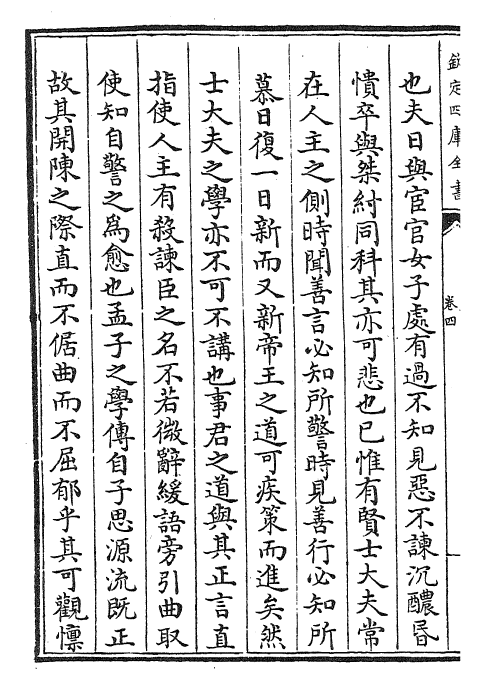 欽定四庫全書
卷四
也夫日與宦官女子處有過不知見惡不諫沉醲昏
憒卒與桀紂同科其亦可悲也已惟有賢士大夫常
在人主之側時聞善言必知所警時見善行必知所
慕日復一日新而又新帝王之道可疾策而進矣然
士大夫之學亦不可不講也事君之道與其正言直
指使人主有殺諫臣之名不若微辭緩語旁引曲取
使知自警之為愈也孟子之學傳自子思源流既正
故其開陳之際直而不倨曲而不屈郁乎其可觀懍